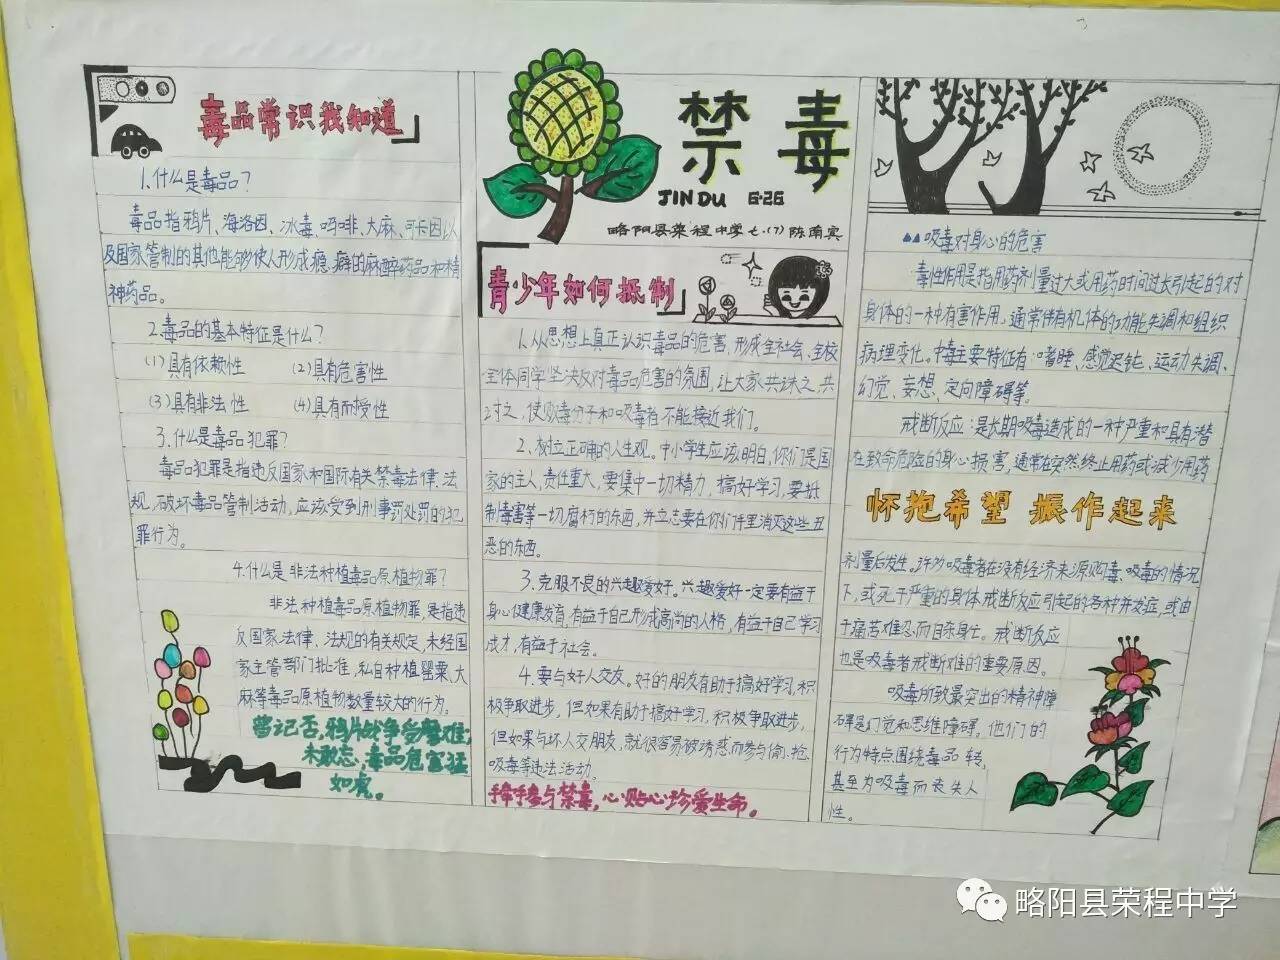 毒品常识我知道
1.什么是毒品?
毒品指鸦片、海洛因、冰毒、吗啡、大麻、可卡因以
及国家管制的其他能够使人形成瘾癖的麻醉药品和精
神药品。
2.毒品的基本特征是什么?
(1)具有依赖性 (2)具有危害性
(3)具有非法性 (4)具有耐授性
3.什么是毒品犯罪?
毒品犯罪是指违反国家和国际有关禁毒法律、法
规,破坏毒品管制活动,应该受到刑事罚处罚的犯
罪行为。
4.什么是非法种植毒品原植物罪?
非法种植毒品原植物罪,是指违
反国家法律、法规的有关规定,未经国
家主管部门批准,私自种植罂粟、大
麻等毒品原植物数量较大的行为。
曾记否,鸦片战争受磨难;
未敢忘,毒品危害猛
如虎。
禁毒
JIN DU 6·26
略阳县荣程中学七.(7)陈南宾
青少年如何抵制
1.从思想上真正认识毒品的危害,形成全社会、全校
全体同学坚决反对毒品危害的氛围,让大家共诛之,共
讨之,使贩毒分子和吸毒者不能接近我们。
2.树立正确的人生观。中小学生应该明白,你们是国
家的主人,责任重大,要集中一切精力,搞好学习,要抵
制毒害等一切腐朽的东西,并立志要在你们手里消灭这些丑
恶的东西。
3.克服不良的兴趣爱好。兴趣爱好一定要有益于
身心健康发育,有益于自己形成高尚的人格,有益于自己学习
成才,有益于社会。
4.要与好人交友。好的朋友有助于搞好学习,积
极争取进步,但如果有助于搞好学习,积极争取进步,
但如果与坏人交朋友,就很容易被诱惑而参与偷、抢、
吸毒等违法活动。
手牵手参与禁毒,心贴心珍爱生命。
▲▲吸毒对身心的危害
毒性作用是指用药剂量过大或用药时间过长引起的对
身体的一种有害作用,通常伴有机体的功能失调和组织
病理变化。中毒主要特征有:嗜睡、感觉迟钝、运动失调、
幻觉、妄想、定向障碍等。
戒断反应:是长期吸毒造成的一种严重和具有潜
在致命危险的身心损害,通常在突然终止用药或减少用药
怀抱希望 振作起来
剂量后发生。许多吸毒者在没有经济来源购毒、吸毒的情况
下,或死于严重的身体戒断反应引起的各种并发症,或由
于痛苦难忍而自杀身亡。戒断反应
也是吸毒者戒断难的重要原因。
吸毒所致最突出的精神障
碍是幻觉和思维障碍。他们的
行为特点围绕毒品转,
甚至为吸毒而丧失人
性。
略阳县荣程中学